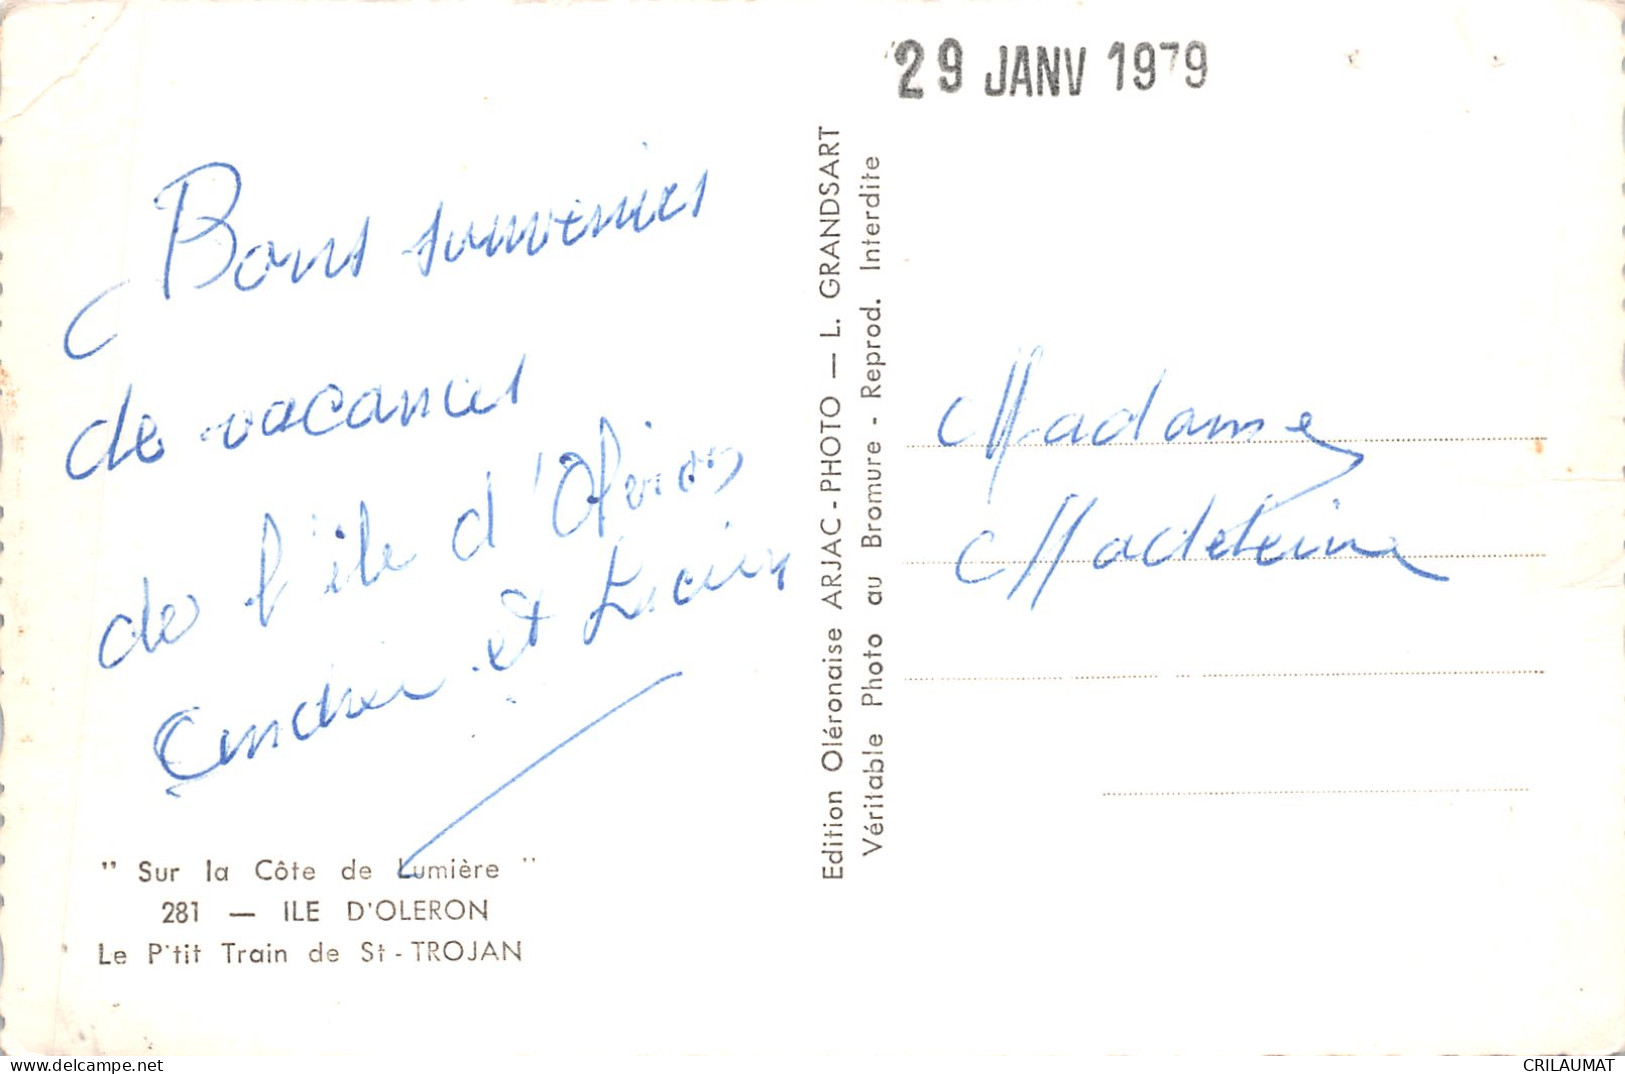 29 JANV 1979
Bons souvenirs
de vacances
de l'île d'Oléron
Andrée et Lucien
Madame
Madeleine
Edition Oléronaise ARJAC - PHOTO — L. GRANDSART
Véritable Photo au Bromure - Reprod. Interdite
" Sur la Côte de Lumière "
281 — ILE D'OLERON
Le P'tit Train de St - TROJAN
CRILAUMAT